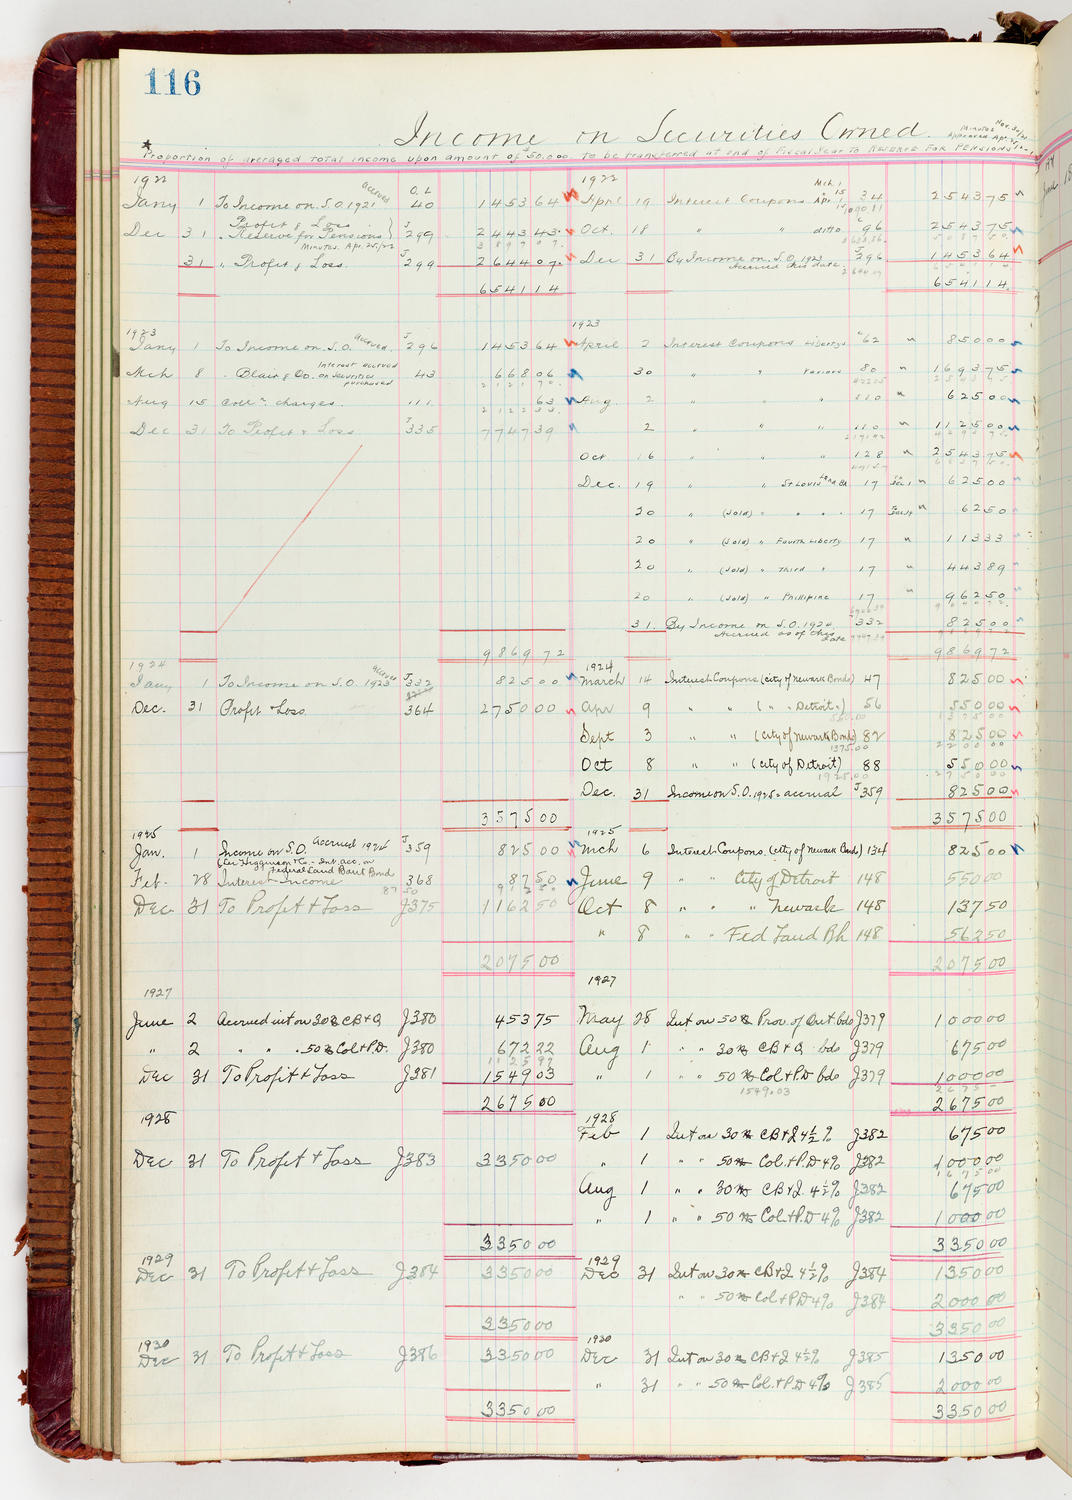 116
Income on Securities Owned.
Minutes Nov. 30/21
Approved Apr. 25/22
* Proportion of averaged total income upon amount of $50,000. to be transferred at end of Fiscal Year to Reserve for Pensions
1922
Jany 1 To Income on S.O. 1921 accrued O.L. 40 1453 64
Dec 31 " Profit & Loss
Reserve for Pensions } J 299 2443 43
Minutes. Apr. 25/22 3897 07
31 " Profit & Loss. J 299 2644 07
6541 14
1923
Jany 1 To Income on S.O. accrued. J 296 1453 64
Mch 8 " Blair & Co. Interest accrued on securities purchased 43 668 06
2121 70
Aug 15 Coll'n. charges. 111 63
2122 33
Dec 31 To Profit & Loss J 335 7747 39
9869 72
1924
Jany 1 To Income on S.O. 1923 accrued J 332 825 00
Dec. 31 Profit & Loss. 364 2750 00
3575 00
1925
Jan. 1 Income on S.O. Accrued 1924 J 359 825 00
(Lee Higginson & Co. - Int. acc. on
Federal Land Bank Bond
Feb. 28 Interest Income 368 87 50
87 50 912 50
Dec 31 To Profit & Loss J375 1162 50
2075 00
1927
June 2 Accrued int on 30M CB&Q J380 453 75
" 2 " " " 50M Col & P.D. J380 672 22
1125 97
Dec 31 To Profit & Loss J381 1549 03
2675 00
1928
Dec 31 To Profit & Loss J383 3350 00
3350 00
1929
Dec 31 To Profit & Loss J384 3350 00
3350 00
1930
Dec 31 To Profit & Loss J386 3350 00
3350 00
1922
April 19 Interest Coupons Mch. 1 " 15 Apr. 1 34 2543 75
Oct. 18 " " ditto 96 2543 75
5087 50
Dec 31 By Income on S.O. 1922 J 296 1453 64
Accrued this date
6541 14
1923
April 2 Interest Coupons Libertys 62 850 00
30 " " Various 80 1693 75
2543 75
Aug. 2 " " " 110 625 00
2 " " " 110 1125 00
4293 75
Oct 16 " " " 128 2543 75
6837 50
Dec. 19 " " St Louis Land Bk 17 625 00
20 " (Sold) " " " " 17 62 50
20 " (Sold) " Fourth Liberty 17 113 33
20 " (Sold) " Third " 17 443 89
20 " (Sold) " Phillipine 17 962 50
31. By Income on S.O. 1924 J 332 825 00
Accrued as of this date
9869 72
1924
March 14 Interest Coupons (City of Newark Bonds) 47 825 00
Apr 9 " " ( " " Detroit " ) 56 550 00
550.00 1375 00
Sept 3 " " (City of Newark Bonds) 82 825 00
1375.00 2200 00
Oct 8 " " (City of Detroit) 88 550 00
1925.00 2750 00
Dec. 31 Income on S.O. 1925 - accrual J359 825 00
3575 00
1925
Mch 6 Interest Coupons. (City of Newark Bonds) 134 825 00
June 9 " " City of Detroit 148 550 00
Oct 8 " " " Newark 148 137 50
" 8 " " Fed Land Bk 148 562 50
2075 00
1927
May 28 Int on 50M Prov. of Ont bds J379 1000 00
Aug 1 " " 30M CB&Q bds J379 675 00
" 1 " " 50M Col & P.D bds J379 1000 00
1549.03 2675 -
2675 00
1928
Feb 1 Int on 30M CB&Q 4½% J382 675 00
" 1 " " 50M Col. & P.D 4% J382 1000 00
1675 00
Aug 1 " " 30M CB&Q. 4½% J382 675 00
" 1 " " 50M Col. & P.D 4% J382 1000 00
3350 00
1929
Dec 31 Int on 30M CB&Q 4½% J384 1350 00
" " 50M Col & P.D 4% J384 2000 00
3350 00
1930
Dec 31 Int on 30M CB&Q 4½% J385 1350 00
" 31 " " 50M Col. & P.D 4% J385 2000 00
3350 00